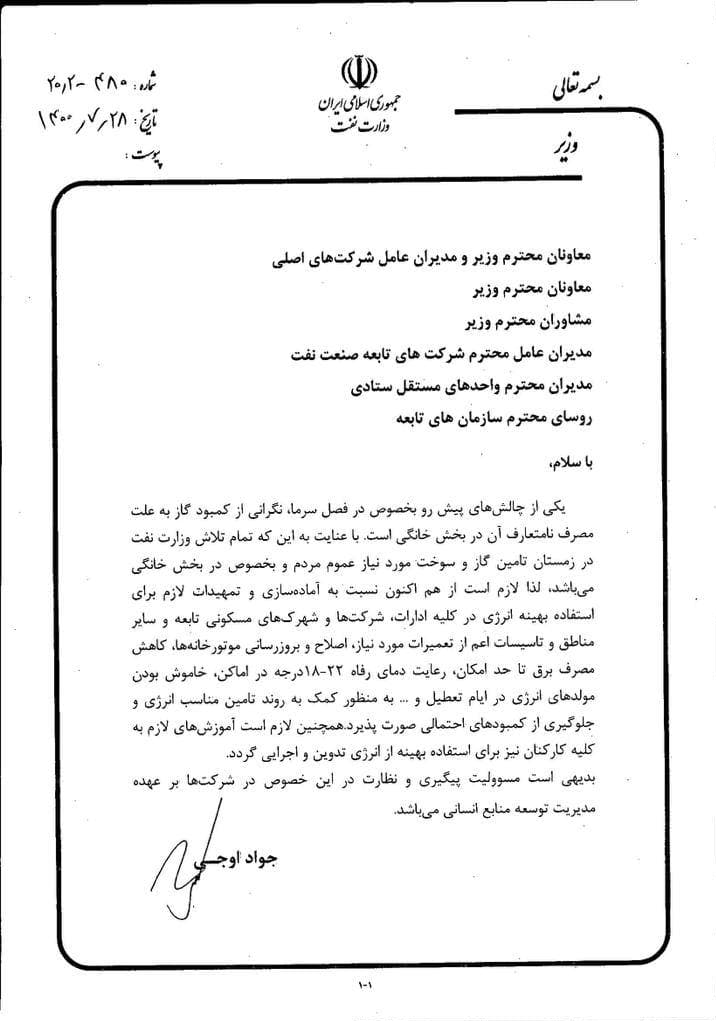 بسمه تعالی
جمهوری اسلامی ایران
وزارت نفت
وزیر
شماره : ۴۸۰-۲۰٫۲
تاریخ : ۱۴۰۰٫۷٫۲۸
پیوست :
معاونان محترم وزیر و مدیران عامل شرکت‌های اصلی
معاونان محترم وزیر
مشاوران محترم وزیر
مدیران عامل محترم شرکت های تابعه صنعت نفت
مدیران محترم واحدهای مستقل ستادی
روسای محترم سازمان های تابعه
با سلام،
یکی از چالش‌های پیش رو بخصوص در فصل سرما، نگرانی از کمبود گاز به علت
مصرف نامتعارف آن در بخش خانگی است. با عنایت به این که تمام تلاش وزارت نفت
در زمستان تامین گاز و سوخت مورد نیاز عموم مردم و بخصوص در بخش خانگی
می‌باشد، لذا لازم است از هم اکنون نسبت به آماده‌سازی و تمهیدات لازم برای
استفاده بهینه انرژی در کلیه ادارات، شرکت‌ها و شهرک‌های مسکونی تابعه و سایر
مناطق و تاسیسات اعم از تعمیرات مورد نیاز، اصلاح و بروزرسانی موتورخانه‌ها، کاهش
مصرف برق تا حد امکان، رعایت دمای رفاه ۲۲-۱۸درجه در اماکن، خاموش بودن
مولدهای انرژی در ایام تعطیل و ... به منظور کمک به روند تامین مناسب انرژی و
جلوگیری از کمبودهای احتمالی صورت پذیرد.همچنین لازم است آموزش‌های لازم به
کلیه کارکنان نیز برای استفاده بهینه از انرژی تدوین و اجرایی گردد.
بدیهی است مسوولیت پیگیری و نظارت در این خصوص در شرکت‌ها بر عهده
مدیریت توسعه منابع انسانی می‌باشد.
جواد اوجی
۱-۱